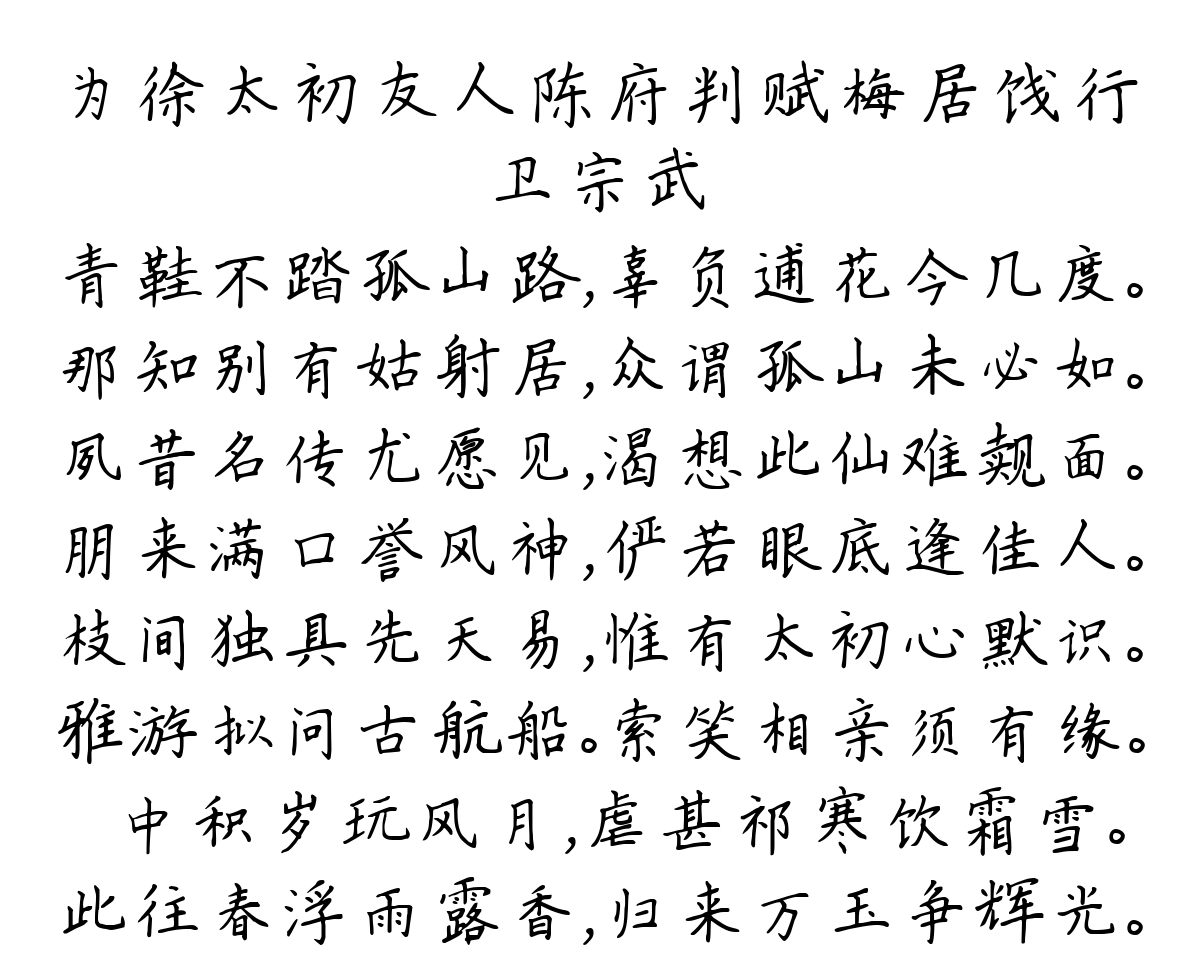 为徐太初友人陈府判赋梅居饯行
卫宗武
青鞋不踏孤山路,辜负逋花今几度。
那知别有姑射居,众谓孤山未必如。
夙昔名传尤愿见,渴想此仙难觌面。
朋来满口誉风神,俨若眼底逢佳人。
枝间独具先天易,惟有太初心默识。
雅游拟问古航船。索笑相亲须有缘。
中积岁玩风月,虐甚祁寒饮霜雪。
此往春浮雨露香,归来万玉争辉光。